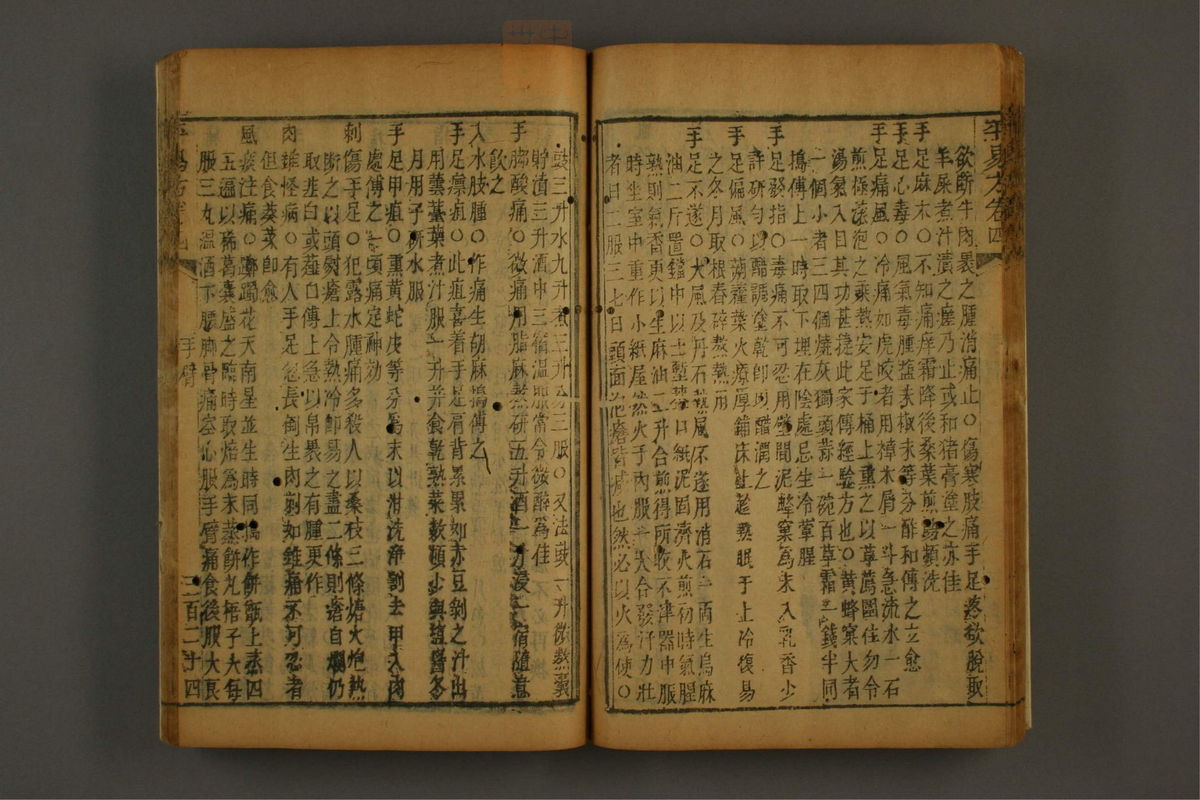 平易方卷四
欲斷牛肉裹之腫消痛止○傷寒肢痛手足落欲脫取
羊屎煮汁漬之瘥乃止或和猪膏塗之亦佳
手足麻木○不知痛痒霜降後桑葉煎湯頻洗
手足心毒○風氣毒腫鹽末椒末等分酢和傅之立愈
手足痛風○冷痛如虎咬者用樟木屑一斗急流水一石
煎極滾泡之乘熱安足于桶上熏之以草薦圍住勿令
湯氣入目其功甚捷此家傳經驗方也○黃蜂窠大者
一個小者三四個燒灰獨頭蒜一碗百草霜一錢半同
搗傅上一時取下埋在陰處忌生冷葷腥
手足發指○毒痛不可忍用壁間泥蜂窠為末入乳香少
許研勻以醋調塗乾即以醋潤之
手足偏風○蒴藋葉火燎厚鋪床上趁熱眠于上冷復易
之冬月取根舂碎熬熱用
手足不遂○大風及丹石熱風不遂用消石一兩生烏麻
油二斤置鐺中以土墼蓋口紙泥固濟火煎初時氣腥
熟則氣香更以生麻油二升合煎得所收不津器中服
時坐室中重作小紙屋然火于內服一大合發汗力壯
者日二服三七日頭面疱瘡皆減也然必以火為使○
豉三升水九升煮三升分三服○又法豉一升微熬囊
貯漬三升酒中三宿溫服常令微醉為佳
手腳酸痛○微痛用脂麻熬研五升酒一升浸一宿隨意
飲之
入水肢腫○作痛生胡麻搗傅之
手足瘭疽○此疽喜着手足肩背累累如赤豆剝之汁出
用蕓薹葉煮汁服一升并食乾熟菜數頓少與鹽醬冬
月用子研水服
手足甲疽○熏黃蛇皮等分為末以泔洗淨割去甲入肉
處傅之一頃痛定神効
刺傷手足○犯露水腫痛多殺人以桑枝三條煻火炮熱
斷之以頭熨瘡上令熱冷即易之盡二條則瘡自爛仍
取韭白或薤白傅上急以帛裹之有腫更作
肉錐怪病○有人手足忽長倒生肉刺如錐痛不可忍者
但食葵菜即愈
風痰注痛○躑躅花天南星並生時同搗作餅甑上蒸四
五遍以稀葛囊盛之臨時取焙為末蒸餅丸梧子大每
服三丸溫酒下腰腳骨痛空心服手臂痛食後服大良
手臂
三百二十四